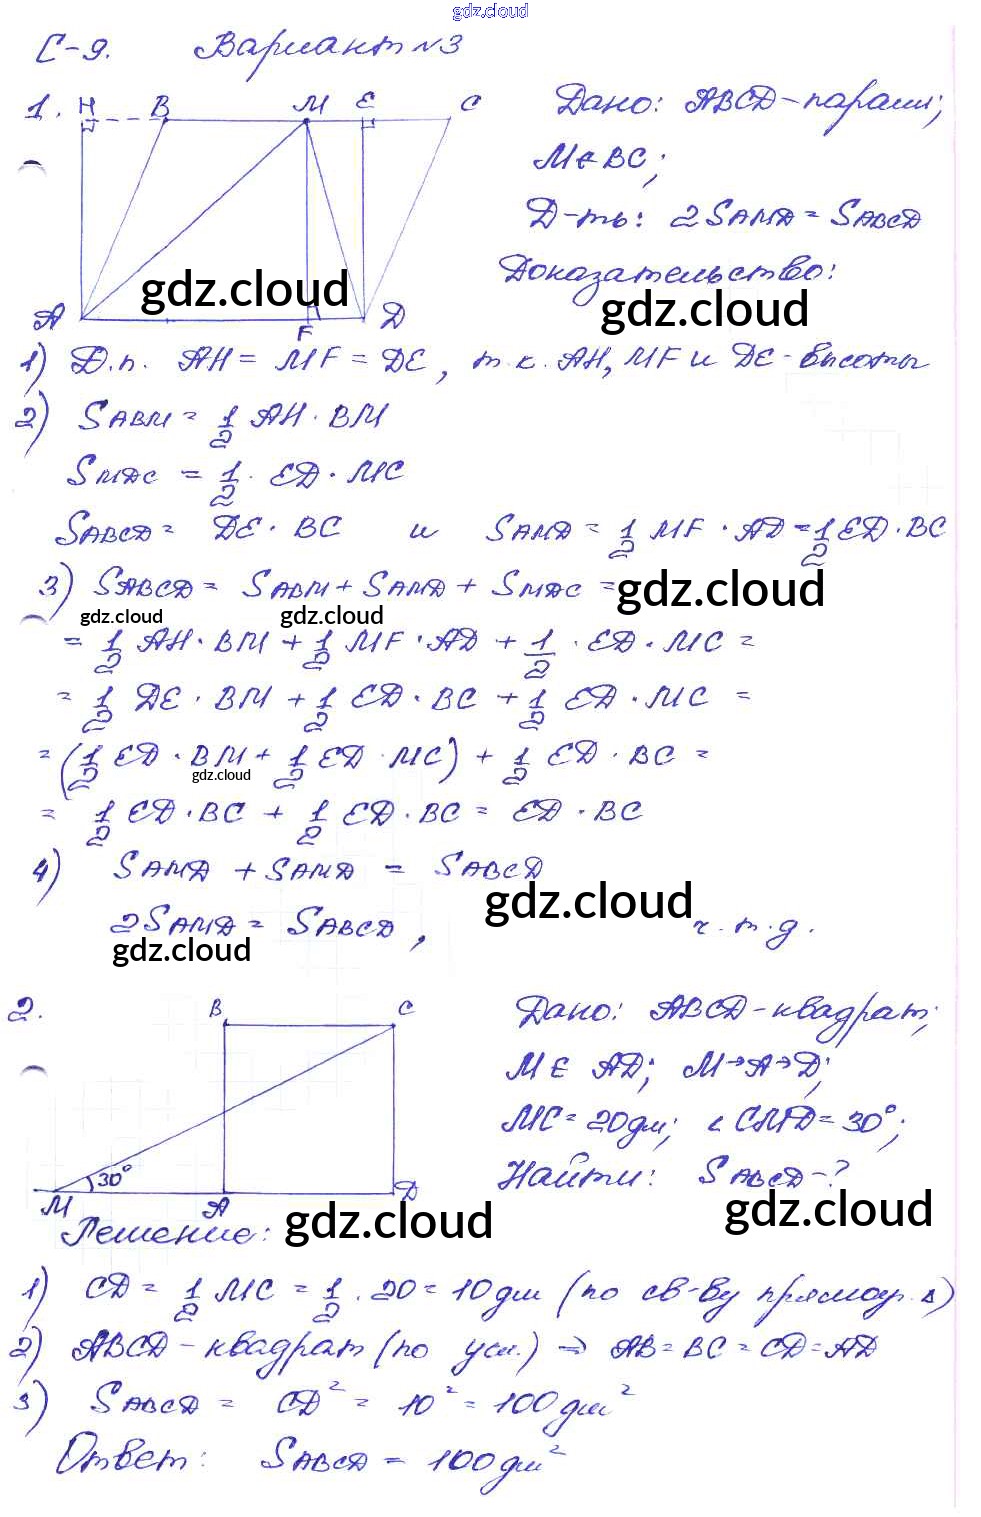 gdz.cloud
С-9. Вариант №3
1. H B M E C
Дано: ABCD-парал;
M∈BC;
Д-ть: 2SAMD = SABCD
gdz.cloud
Доказательство:
gdz.cloud
A F D
1) Д.п. AH = MF = DE, т.к. AH, MF и DE - высоты
2) SABM = 1/2 AH · BM
SMDC = 1/2 · ED · MC
SABCD = DE · BC и SAMD = 1/2 MF · AD = 1/2 ED · BC
3) SABCD = SABM + SAMD + SMDC =
gdz.cloud
gdz.cloud
gdz.cloud
= 1/2 AH · BM + 1/2 MF · AD + 1/2 · ED · MC =
= 1/2 DE · BM + 1/2 ED · BC + 1/2 ED · MC =
= (1/2 ED · BM + 1/2 ED · MC) + 1/2 ED · BC =
gdz.cloud
= 1/2 ED · BC + 1/2 ED · BC = ED · BC
4) SAMD + SAMD = SABCD
gdz.cloud
2SAMD = SABCD, ч.т.д.
gdz.cloud
2. B C
Дано: ABCD-квадрат;
M∈ AD; M→A→D;
MC = 20дм; ∠CMD = 30°;
Найти: SABCD-?
30°
M A D
gdz.cloud
gdz.cloud
Решение:
1) CD = 1/2 MC = 1/2 · 20 = 10дм (по св-ву прямоуг. Δ)
2) ABCD - квадрат (по усл.) ⇒ AB = BC = CD = AD
3) SABCD = CD² = 10² = 100дм²
Ответ: SABCD = 100дм²